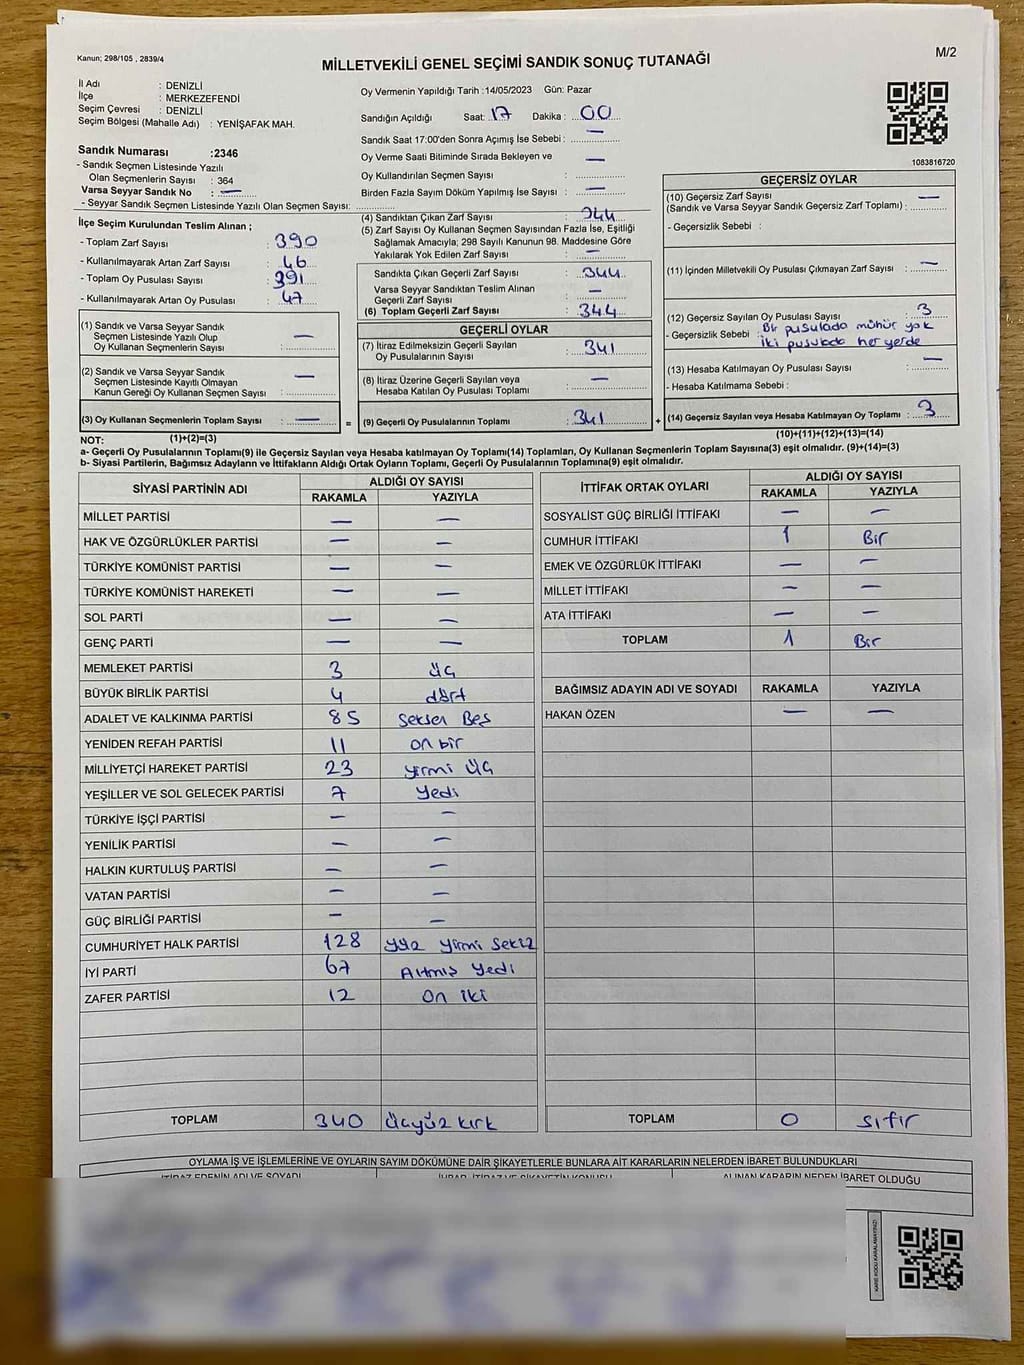 Kanun; 298/105 , 2839/4
MİLLETVEKİLİ GENEL SEÇİMİ SANDIK SONUÇ TUTANAĞI
M/2
İl Adı : DENİZLİ
İlçe : MERKEZEFENDİ
Seçim Çevresi : DENİZLİ
Seçim Bölgesi (Mahalle Adı) : YENİŞAFAK MAH.
Sandık Numarası :2346
- Sandık Seçmen Listesinde Yazılı
Olan Seçmenlerin Sayısı : 364
Varsa Seyyar Sandık No : —
- Seyyar Sandık Seçmen Listesinde Yazılı Olan Seçmen Sayısı:
Oy Vermenin Yapıldığı Tarih :14/05/2023 Gün: Pazar
Sandığın Açıldığı Saat: 17 Dakika : 00
Sandık Saat 17:00'den Sonra Açımış İse Sebebi : —
Oy Verme Saati Bitiminde Sırada Bekleyen ve
Oy Kullandırılan Seçmen Sayısı : —
Birden Fazla Sayım Döküm Yapılmış İse Sayısı : —
1083816720
İlçe Seçim Kurulundan Teslim Alınan ;
- Toplam Zarf Sayısı : 390
- Kullanılmayarak Artan Zarf Sayısı : 46
- Toplam Oy Pusulası Sayısı : 391
- Kullanılmayarak Artan Oy Pusulası : 47
(1) Sandık ve Varsa Seyyar Sandık
Seçmen Listesinde Yazılı Olup
Oy Kullanan Seçmenlerin Sayısı : —
(2) Sandık ve Varsa Seyyar Sandık
Seçmen Listesinde Kayıtlı Olmayan
Kanun Gereği Oy Kullanan Seçmen Sayısı : —
(3) Oy Kullanan Seçmenlerin Toplam Sayısı : —
(1)+(2)=(3)
(4) Sandıktan Çıkan Zarf Sayısı : 344
(5) Zarf Sayısı Oy Kullanan Seçmen Sayısından Fazla İse, Eşitliği
Sağlamak Amacıyla; 298 Sayılı Kanunun 98. Maddesine Göre
Yakılarak Yok Edilen Zarf Sayısı : —
Sandıkta Çıkan Geçerli Zarf Sayısı : 344
Varsa Seyyar Sandıktan Teslim Alınan
Geçerli Zarf Sayısı : —
(6) Toplam Geçerli Zarf Sayısı : 344
GEÇERLİ OYLAR
(7) İtiraz Edilmeksizin Geçerli Sayılan
Oy Pusulalarının Sayısı : 341
(8) İtiraz Üzerine Geçerli Sayılan veya
Hesaba Katılan Oy Pusulası Toplamı : —
= (9) Geçerli Oy Pusulalarının Toplamı : 341 +
GEÇERSİZ OYLAR
(10) Geçersiz Zarf Sayısı : —
(Sandık ve Varsa Seyyar Sandık Geçersiz Zarf Toplamı) :
- Geçersizlik Sebebi :
(11) İçinden Milletvekili Oy Pusulası Çıkmayan Zarf Sayısı : —
(12) Geçersiz Sayılan Oy Pusulası Sayısı : 3
- Geçersizlik Sebebi : Bir pusulada mühür yok
iki pusulada her yerde
(13) Hesaba Katılmayan Oy Pusulası Sayısı : —
- Hesaba Katılmama Sebebi :
(14) Geçersiz Sayılan veya Hesaba Katılmayan Oy Toplamı : 3
(10)+(11)+(12)+(13)=(14)
NOT:
a- Geçerli Oy Pusulalarının Toplamı(9) ile Geçersiz Sayılan veya Hesaba katılmayan Oy Toplamı(14) Toplamları, Oy Kullanan Seçmenlerin Toplam Sayısına(3) eşit olmalıdır. (9)+(14)=(3)
b- Siyasi Partilerin, Bağımsız Adayların ve İttifakların Aldığı Ortak Oyların Toplamı, Geçerli Oy Pusulalarının Toplamına(9) eşit olmalıdır.
SİYASİ PARTİNİN ADI ALDIĞI OY SAYISI
RAKAMLA YAZIYLA
MİLLET PARTİSİ — —
HAK VE ÖZGÜRLÜKLER PARTİSİ — —
TÜRKİYE KOMÜNİST PARTİSİ — —
TÜRKİYE KOMÜNİST HAREKETİ — —
SOL PARTİ — —
GENÇ PARTİ — —
MEMLEKET PARTİSİ 3 üç
BÜYÜK BİRLİK PARTİSİ 4 dört
ADALET VE KALKINMA PARTİSİ 85 Seksen Beş
YENİDEN REFAH PARTİSİ 11 on bir
MİLLİYETÇİ HAREKET PARTİSİ 23 yirmi üç
YEŞİLLER VE SOL GELECEK PARTİSİ 7 Yedi
TÜRKİYE İŞÇİ PARTİSİ — —
YENİLİK PARTİSİ — —
HALKIN KURTULUŞ PARTİSİ — —
VATAN PARTİSİ — —
GÜÇ BİRLİĞİ PARTİSİ — —
CUMHURİYET HALK PARTİSİ 128 yüz yirmi sekiz
İYİ PARTİ 67 Altmış yedi
ZAFER PARTİSİ 12 On iki
TOPLAM 340 üçyüz kırk
İTTİFAK ORTAK OYLARI ALDIĞI OY SAYISI
RAKAMLA YAZIYLA
SOSYALİST GÜÇ BİRLİĞİ İTTİFAKI — —
CUMHUR İTTİFAKI 1 Bir
EMEK VE ÖZGÜRLÜK İTTİFAKI — —
MİLLET İTTİFAKI — —
ATA İTTİFAKI — —
TOPLAM 1 Bir
BAĞIMSIZ ADAYIN ADI VE SOYADI RAKAMLA YAZIYLA
HAKAN ÖZEN — —
TOPLAM 0 sıfır
OYLAMA İŞ VE İŞLEMLERİNE VE OYLARIN SAYIM DÖKÜMÜNE DAİR ŞİKAYETLERLE BUNLARA AİT KARARLARIN NELERDEN İBARET BULUNDUKLARI
İTİRAZ EDENİN ADI VE SOYADI İHBAR, İTİRAZ VE ŞİKAYETİN KONUSU ALINAN KARARIN NEDEN İBARET OLDUĞU
KARE KODU KARALAMAYINIZ!